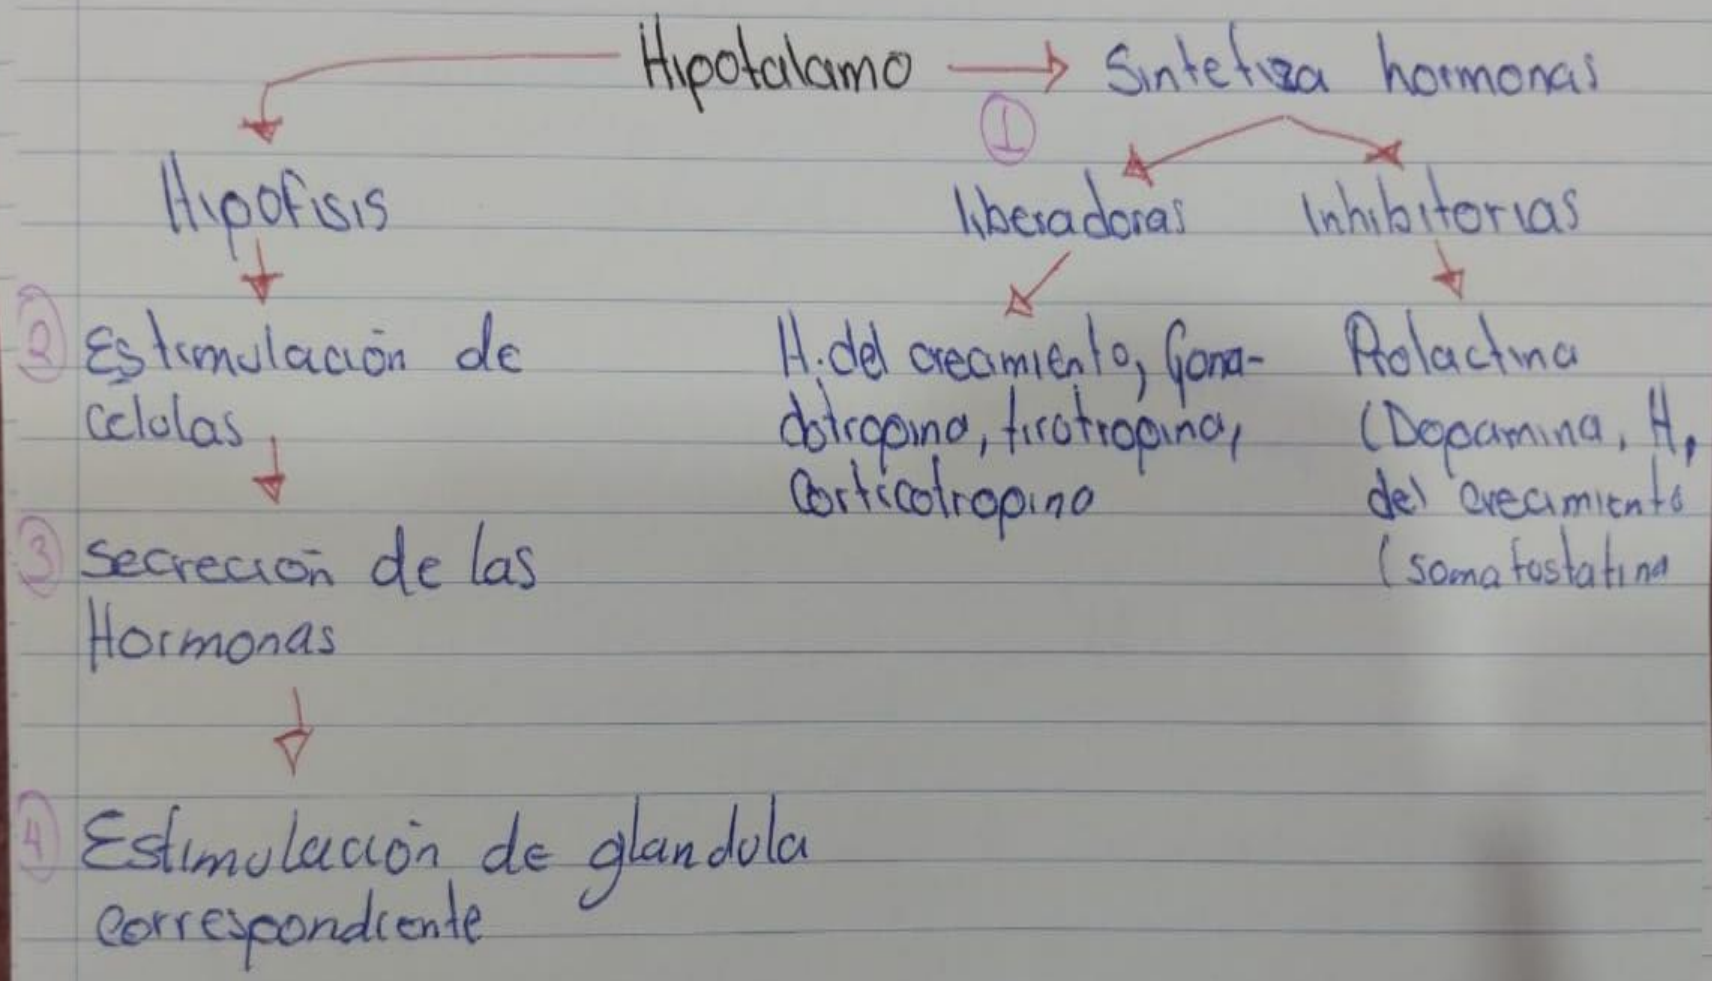 Hipotalamo → Sintetiza hormonas
①
Hipofisis
liberadoras Inhibitorias
② Estimulación de
celulas
③ Secreción de las
Hormonas
④ Estimulación de glandula
correspondiente
H. del crecimiento, Gona-
dotropina, tirotropina,
Corticotropina
Prolactina
(Dopamina, H,
del crecimiento
(somatostatina